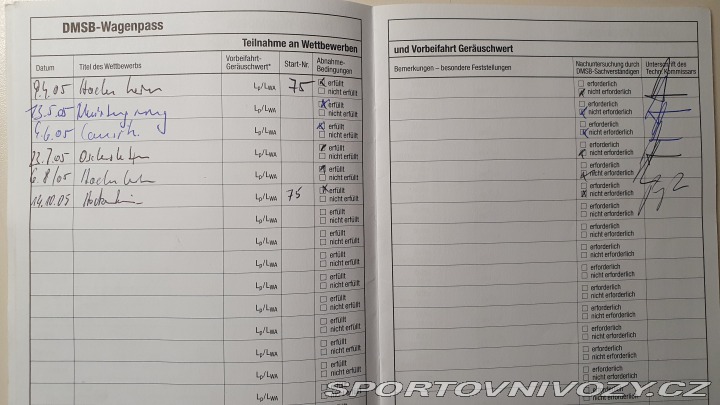 DMSB-Wagenpass
Teilnahme an Wettbewerben
Datum Titel des Wettbewerbs Vorbeifahrt-Geräuschwert* Start-Nr. Abnahme-Bedingungen
9.4.05 Hockenheim Lp/LWA 75 erfüllt
nicht erfüllt
13.5.05 Lp/LWA erfüllt
nicht erfüllt
4.6.05 Lp/LWA erfüllt
nicht erfüllt
23.7.05 Oschersleben Lp/LWA erfüllt
nicht erfüllt
6.8.05 Hockenheim Lp/LWA erfüllt
nicht erfüllt
14.10.05 Hockenheim Lp/LWA 75 erfüllt
nicht erfüllt
Lp/LWA erfüllt
nicht erfüllt
Lp/LWA erfüllt
nicht erfüllt
Lp/LWA erfüllt
nicht erfüllt
Lp/LWA erfüllt
nicht erfüllt
Lp/LWA erfüllt
nicht erfüllt
Lp/LWA erfüllt
nicht erfüllt
Lp/LWA erfüllt
nicht erfüllt
Lp/LWA erfüllt
nicht erfüllt
Lp/LWA erfüllt
nicht erfüllt
und Vorbeifahrt Geräuschwert
Bemerkungen – besondere Feststellungen Nachuntersuchung durch DMSB-Sachverständigen Unterschrift des Techn. Kommissars
erforderlich
nicht erforderlich
erforderlich
nicht erforderlich
erforderlich
nicht erforderlich
erforderlich
nicht erforderlich
erforderlich
nicht erforderlich
erforderlich
nicht erforderlich
erforderlich
nicht erforderlich
erforderlich
nicht erforderlich
erforderlich
nicht erforderlich
erforderlich
nicht erforderlich
erforderlich
nicht erforderlich
erforderlich
nicht erforderlich
erforderlich
nicht erforderlich
erforderlich
nicht erforderlich
erforderlich
nicht erforderlich
SPORTOVNIVOZY.CZ